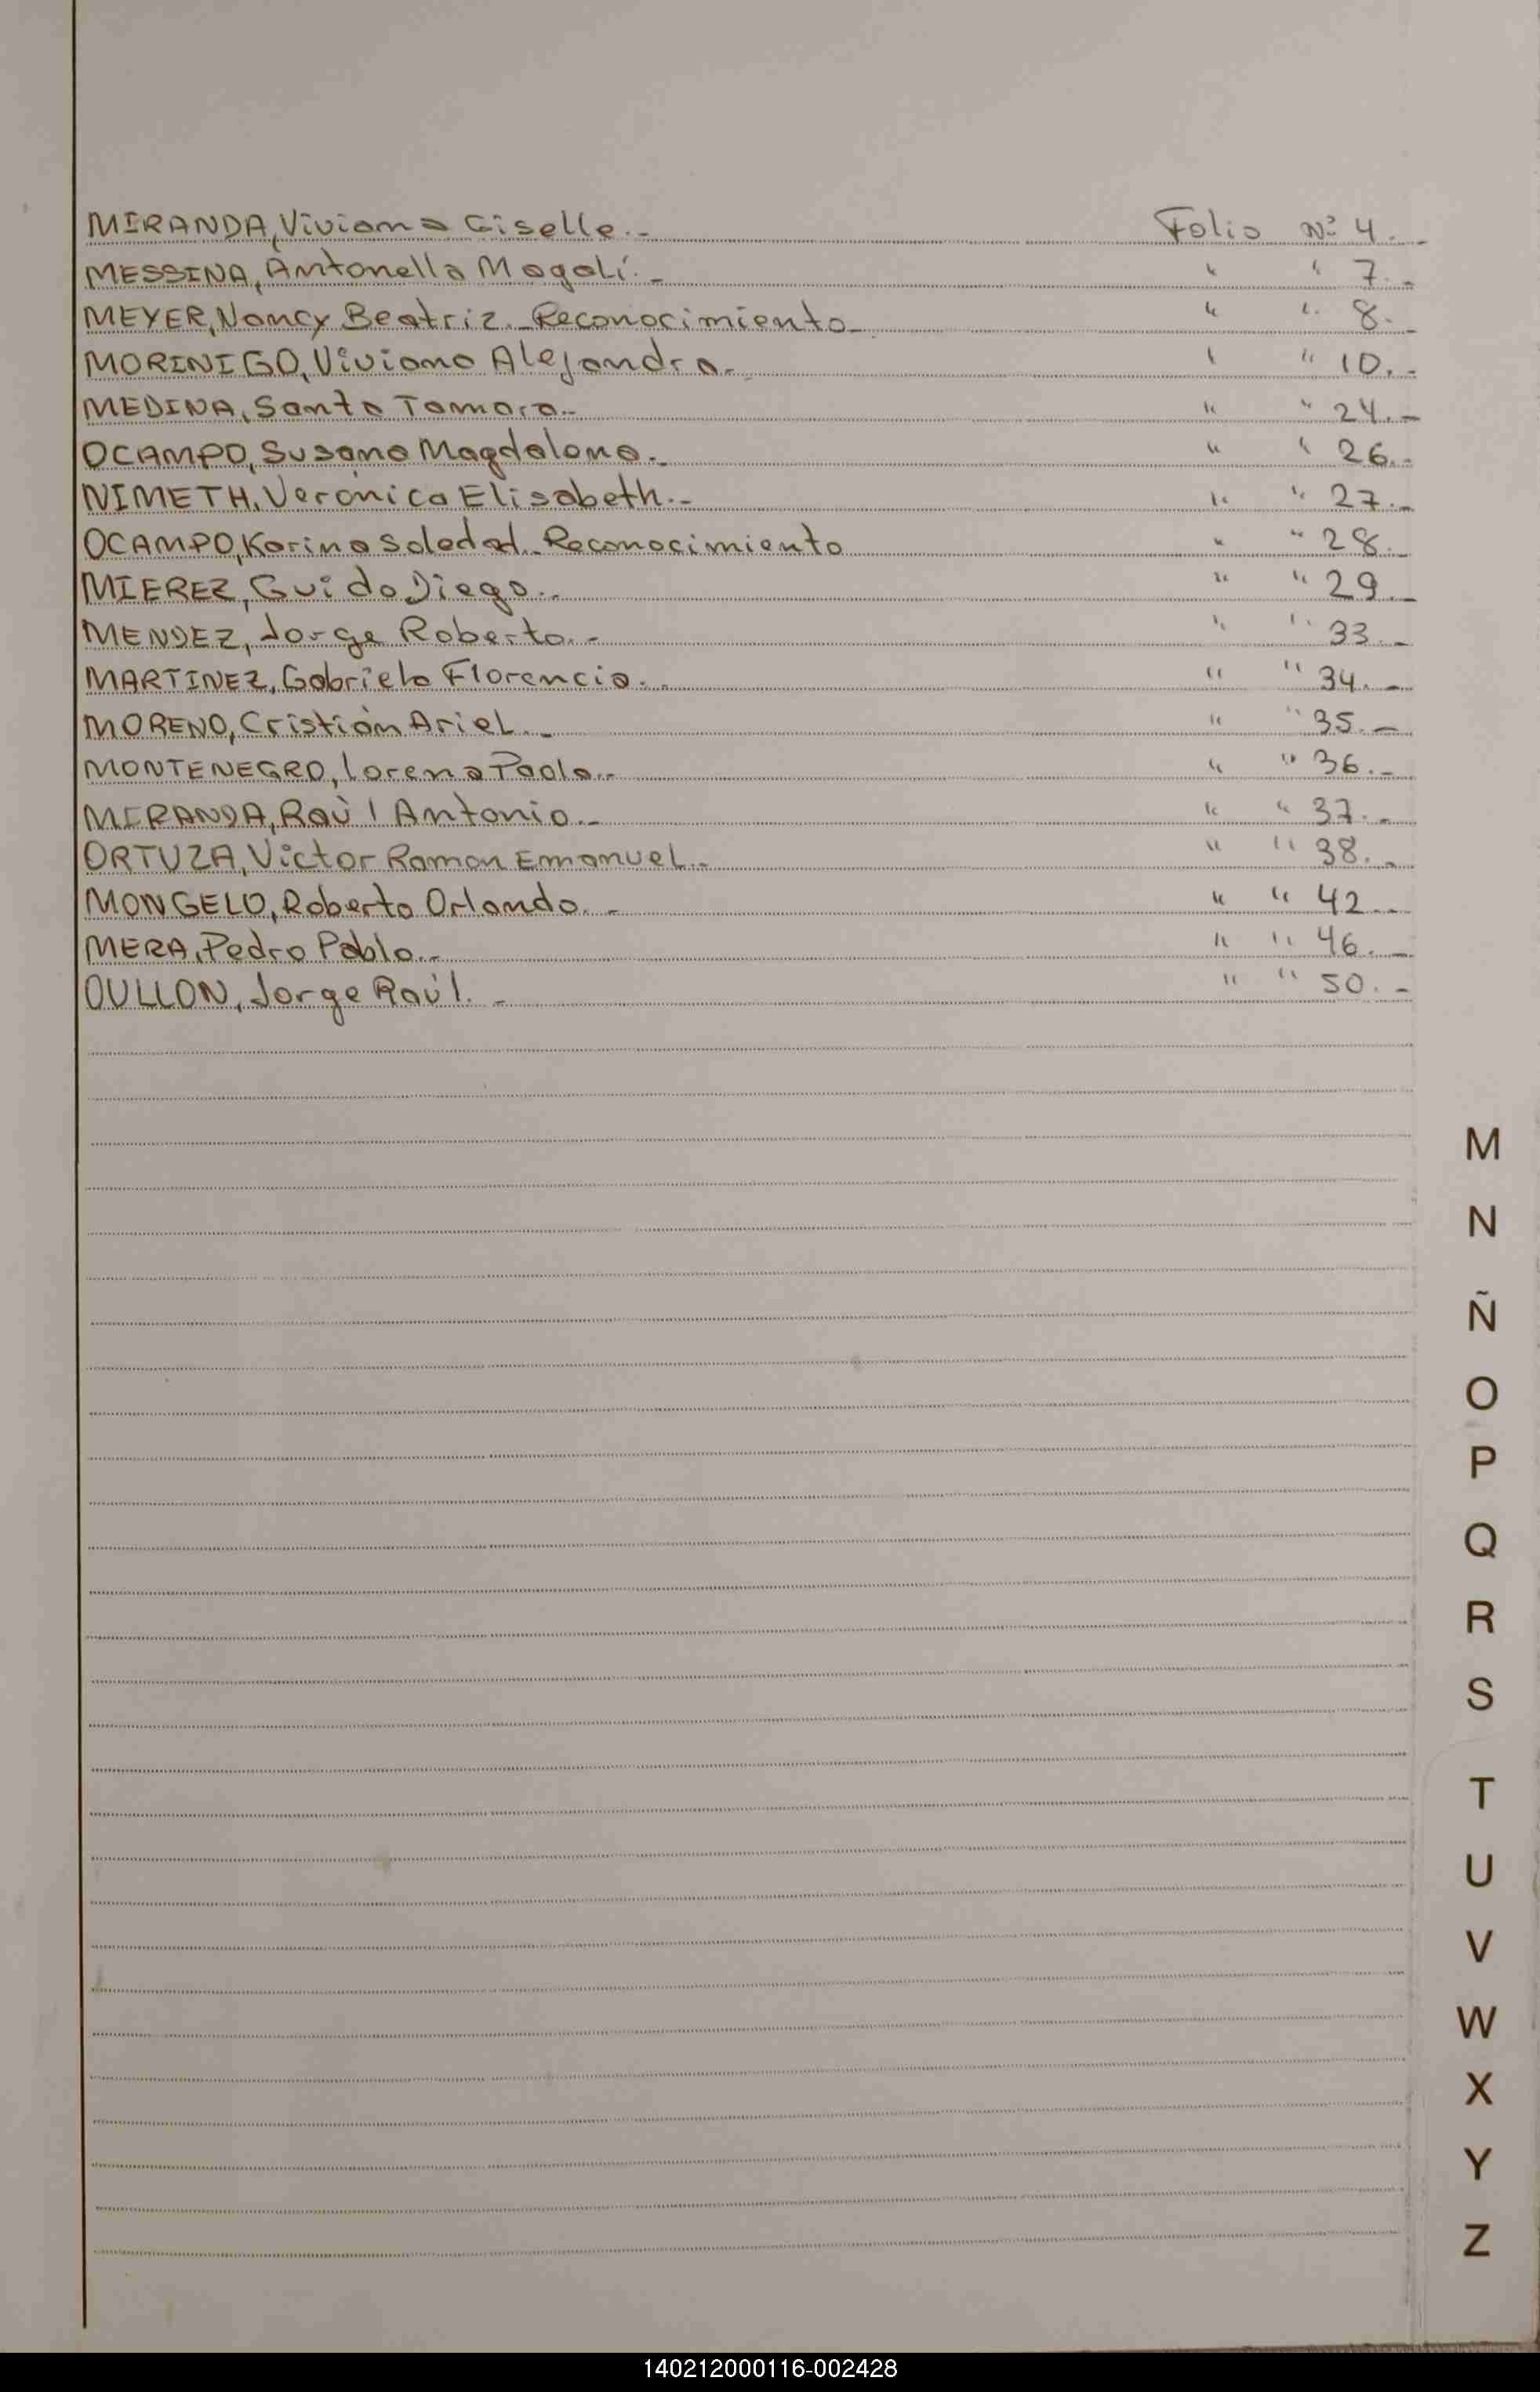 MIRANDA, Viviana Giselle.- Folio Nº 4.-
MESSINA, Antonella Magalí.- " " 7.-
MEYER, Nancy Beatriz.- Reconocimiento- " " 8.-
MORINIGO, Viviana Alejandra.- " " 10.-
MEDINA, Santa Tamara.- " " 24.-
OCAMPO, Susana Magdalena.- " " 26.-
NIMETH, Verónica Elisabeth.- " " 27.-
OCAMPO, Karina Soledad.- Reconocimiento " " 28.-
MIEREZ, Guido Diego.- " " 29.-
MENDEZ, Jorge Roberto.- " " 33.-
MARTINEZ, Gabriela Florencia.- " " 34.-
MORENO, Cristián Ariel.- " " 35.-
MONTENEGRO, Lorena Paola.- " " 36.-
MIRANDA, Raùl Antonio.- " " 37.-
ORTUZA, Victor Ramon Emanuel.- " " 38.-
MONGELO, Roberto Orlando.- " " 42.-
MERA, Pedro Pablo.- " " 46.-
OULLON, Jorge Raúl.- " " 50.-
M
N
Ñ
O
P
Q
R
S
T
U
V
W
X
Y
Z
140212000116-002428